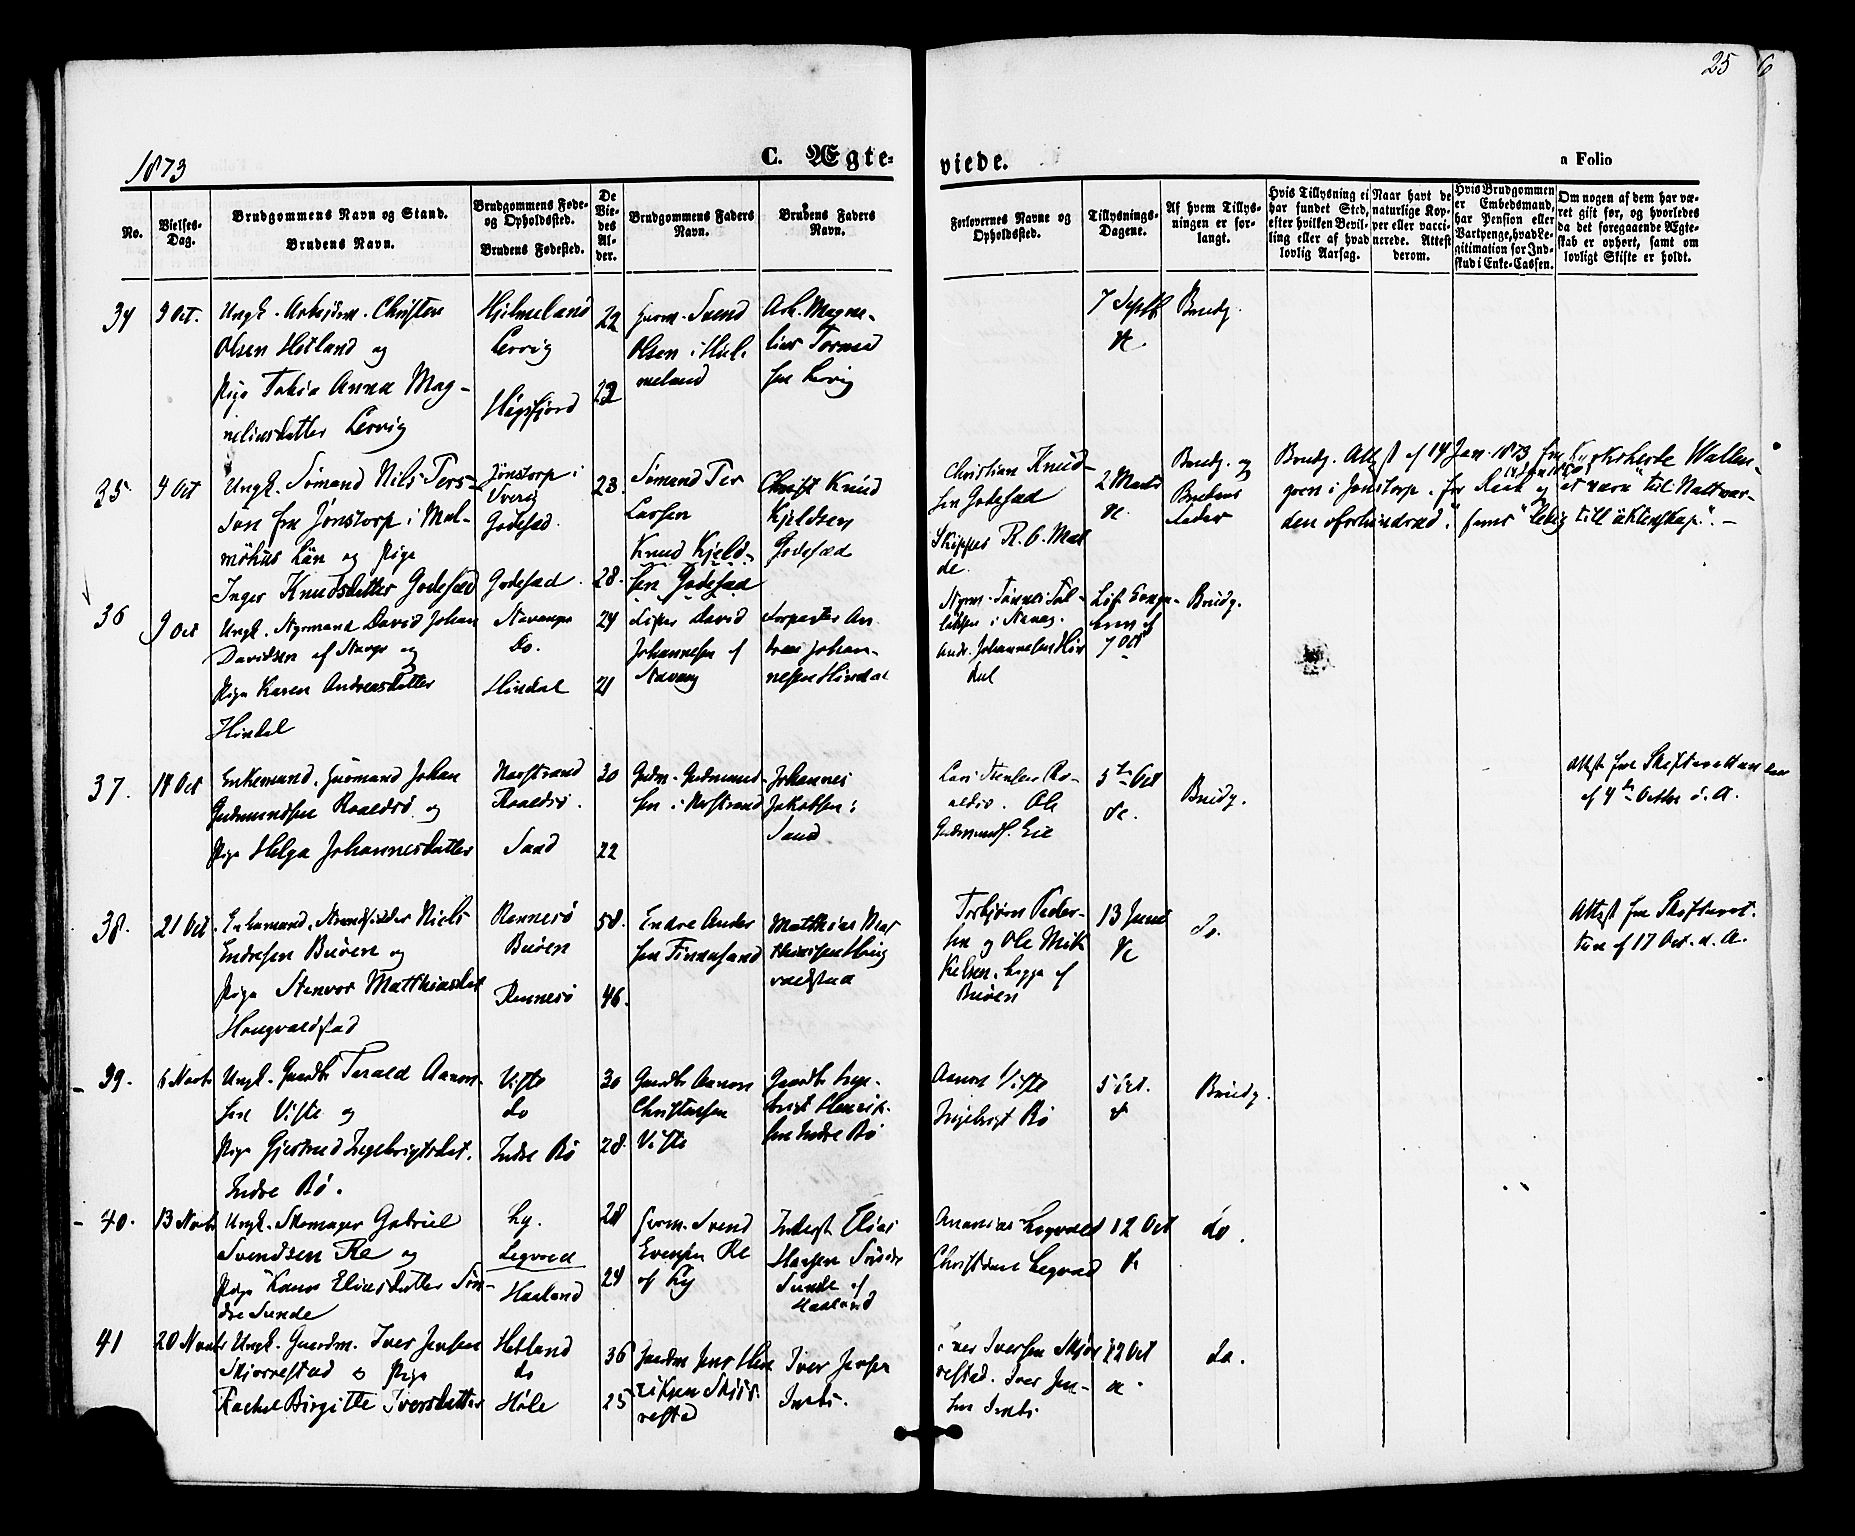 25
6
1873
C. Ægte-
viede.
a Folio
No.
Vielses-
Dag.
Brudgommens Navn og Stand.
Brudens Navn.
Brudgommens Føde-
og Opholdssted.
Brudens Fødested.
De
Vie-
des
Al-
der.
Brudgommens Faders
Navn.
Brudens Faders
Navn.
Forlovernes Navne og
Opholdssted.
Tillysnings-
Dagene.
Af hvem Tillys-
ningen er for-
langt.
Hvis Tillysning ei
har fundet Sted,
efter hvilken Bevil-
ling eller af hvad
lovlig Aarsag.
Naar havt de
naturlige Kop-
per eller vacci-
nerede. Attest
derom.
Hvis Brudgommen
er Embedsmand,
har Pension eller
Vartpenge, hvad Le-
gitimation for Ind-
skud i Enke-Cassen.
Om nogen af dem har væ-
ret gift før, og hvorledes
da det foregaaende Ægte-
skab er ophørt, samt om
lovligt Skifte er holdt.
34
9 Oct.
Ungk. Arbejdsm. Christen
Olsen Hetland og
Pige Tabia Anna Mag-
neliusdatter Lervig
Hjelmeland
Lervig
Høgsfjord
22
22
Svend
Olsen i Hjel-
meland
Arb. Magne-
lius Torme
Lervig
7 Septb
&c.
Brudg.
35
9 Oct
Ungk. Sømand Nils Pers-
son fra Jönstorp i Mal-
möhus Län og Pige
Inger Knudsdatter Godesæd
Jönstorp i
Sverig
Godesæd
Godesæd.
23.
28.
Sømand Per
Larsen
Knud Kjeld-
sen Godesæd
Christ Knud
Kjeldsen
Godesæd
Christian Knud-
sen Godesæd
Skipper R. G. Mal
de.
2 Marts
&c.
Brudg. og
Brudens
Fader
Brudg. Attest af 14 Jan. 1873 fra Kyrkoherde Wallen-
gren i Jonstorp, för och at vara "till Nattvar-
den oforhindrad," samt "ledig till äktenskap". -
36
9 Oct
Ungk. Styrmand David Johan
Davidsen af Stavgr og
Pige Karen Andreasdatter
Hindal
Stavanger
Do.
Hindal
24
21
David
Johannesen af
Stavang
An
dreas Johan-
nesen Hindal
Styrm. Tønnes Tol-
laksen i Stavag.
Andr. Johannesen Hin
dal
7 Oct
Brudg.
37.
18 Oct
Enkemand, Huusmand Johan
Gudmundsen Roaldsø og
Pige Helga Johannesdatter
Nærstrand
Roaldsø.
Sand
30
22
Gudm. Gudmund-
sen i Nerstrand
Johannes
Jakobsen i
Sand
Lars Steensen Ro-
aldsø. Ole
Gudmunds. Eie
5te Oct
&c.
Brudg.
Attest fra Skifteretten
af 4de Octbr d. A.
38.
21 Oct.
Enkemand, Niels
Endresen Buøen og
Pige Stenvor Matthiasdat
Haugvaldstad
Rennesø
Buøen
Rennesø
58.
46.
Endre Ander
sen Finnesand
Matthias Mat
thiassen Haug
valdstad
Torbjørn Peder-
sen og Ole Mik
kelsen, begge af
Buøen
13 Juni
&c
Do.
Attest fra Skifteret-
ten af 17 Oct. d. A.
39.
6 Novbr
Ungk. Gaardbr Torald Aanon-
sen Viste og
Pige Gjertrud Ingebrigtsdat.
Indre Bø.
Viste
do
Indre Bø
30
28.
Gaardbr Aanon
Christensen
Viste
Gaardbr Inge-
brigt Henrik-
sen Indre Bø
Aanon Viste
Ingebrigt Bø
5 Oct.
&
Brudg.
40.
13 Novbr
Ungk. Skomager Gabriel
Svendsen Re og
Pige Karen Eliasdatter Søn-
dre Sunde
Ly.
Legvold
Haaland
28
24
Svend
Evensen Re
af Ly
Inderst Elias
Hansen Søndre
Sunde af
Haaland
Ananias Legvold
Christian Legvold
12 Oct
&
do.
41
20 Novbr
Ungk. Gaardm. Iver Jensen
Skjørrestad & Pige
Rachel Birgitte Iversdatter
Hetland
do
Høle
36
25
Gaardm Jens Hen
riksen Skjør-
restad
Iver Jensen
Imbs.
Iver Iversen Skjør
restad. Iver Jen-
sen Imbs.
12 Oct
&.
do.